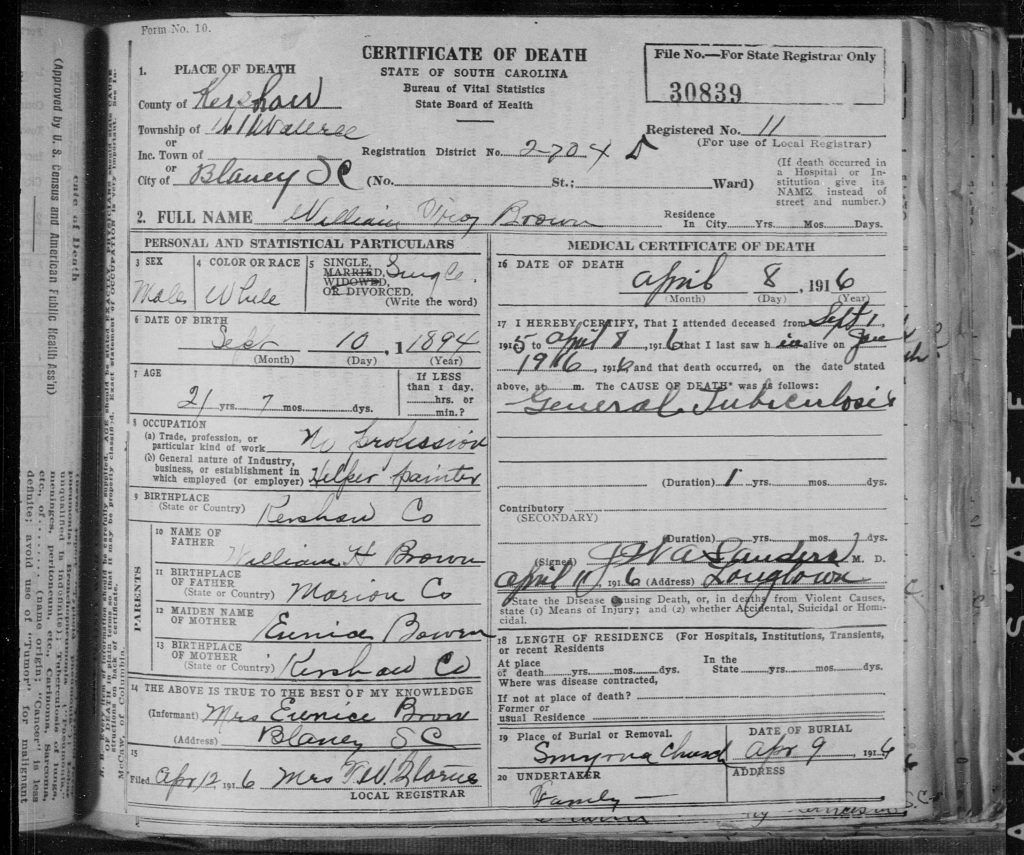 Form No. 10.
CERTIFICATE OF DEATH
STATE OF SOUTH CAROLINA
Bureau of Vital Statistics
State Board of Health
File No.—For State Registrar Only
30839
1. PLACE OF DEATH
County of Kershaw
Township of W Wateree
or
Inc. Town of
or
City of Blaney SC (No. St.; Ward)
Registration District No. 2704 D
Registered No. 11
(For use of Local Registrar)
(If death occurred in
a Hospital or In-
stitution give its
NAME instead of
street and number.)
2. FULL NAME William Brown
Residence
In City Yrs. Mos. Days.
PERSONAL AND STATISTICAL PARTICULARS
3 SEX
Male
4 COLOR OR RACE
White
5 SINGLE,
MARRIED,
WIDOWED,
OR DIVORCED.
(Write the word)
Single
6 DATE OF BIRTH
Sept 10, 1 1894
(Month) (Day) (Year)
7 AGE
21 yrs. 7 mos. dys.
If LESS
than 1 day.
hrs. or
min.?
8 OCCUPATION
(a) Trade, profession, or
particular kind of work No profession
(b) General nature of Industry,
business, or establishment in
which employed (or employer) Helper painter
9 BIRTHPLACE
(State or Country) Kershaw Co
PARENTS
10 NAME OF
FATHER
William H Brown
11 BIRTHPLACE
OF FATHER
(State or Country) Marion Co
12 MAIDEN NAME
OF MOTHER
Eunice Bowen
13 BIRTHPLACE
OF MOTHER
(State or Country) Kershaw Co
14 THE ABOVE IS TRUE TO THE BEST OF MY KNOWLEDGE
(Informant) Mrs Eunice Brown
(Address) Blaney SC
15
Filed Apr 12 1916 Mrs
LOCAL REGISTRAR
MEDICAL CERTIFICATE OF DEATH
16 DATE OF DEATH
April 8, 1916
(Month) (Day) (Year)
17 I HEREBY CERTIFY, That I attended deceased from Sept 1
1915 to April 8, 1916 that I last saw h im alive on
1916, 1916 and that death occurred, on the date stated
above, at m. The CAUSE OF DEATH* was as follows:
General Tubiculosis
(Duration) 1 yrs. mos. dys.
Contributory
(SECONDARY)
(Duration) yrs. mos. dys.
(Signed) Sanders M. D.
April 11 1916 (Address) Longtown
*State the Disease Causing Death, or, in deaths from Violent Causes,
state (1) Means of Injury; and (2) whether Accidental, Suicidal or Hom-
icidal.
18 LENGTH OF RESIDENCE (For Hospitals, Institutions, Transients,
or recent Residents
At place
of death yrs. mos. dys.
In the
State yrs. mos. dys.
Where was disease contracted,
If not at place of death?
Former or
usual Residence
19 Place of Burial or Removal.
Smyrna Church
DATE OF BURIAL
Apr 9 1916
20 UNDERTAKER
Family
ADDRESS
S.C.
(Approved by U. S. Census and American Public Health Ass'n)
cate of Death
McCaw, of Columbia.
meninges, peritoneum, etc., Carinoma, Sarcoma,
etc., of (name origin; "Cancer" is less
definite; avoid use of "Tumor" for malignant